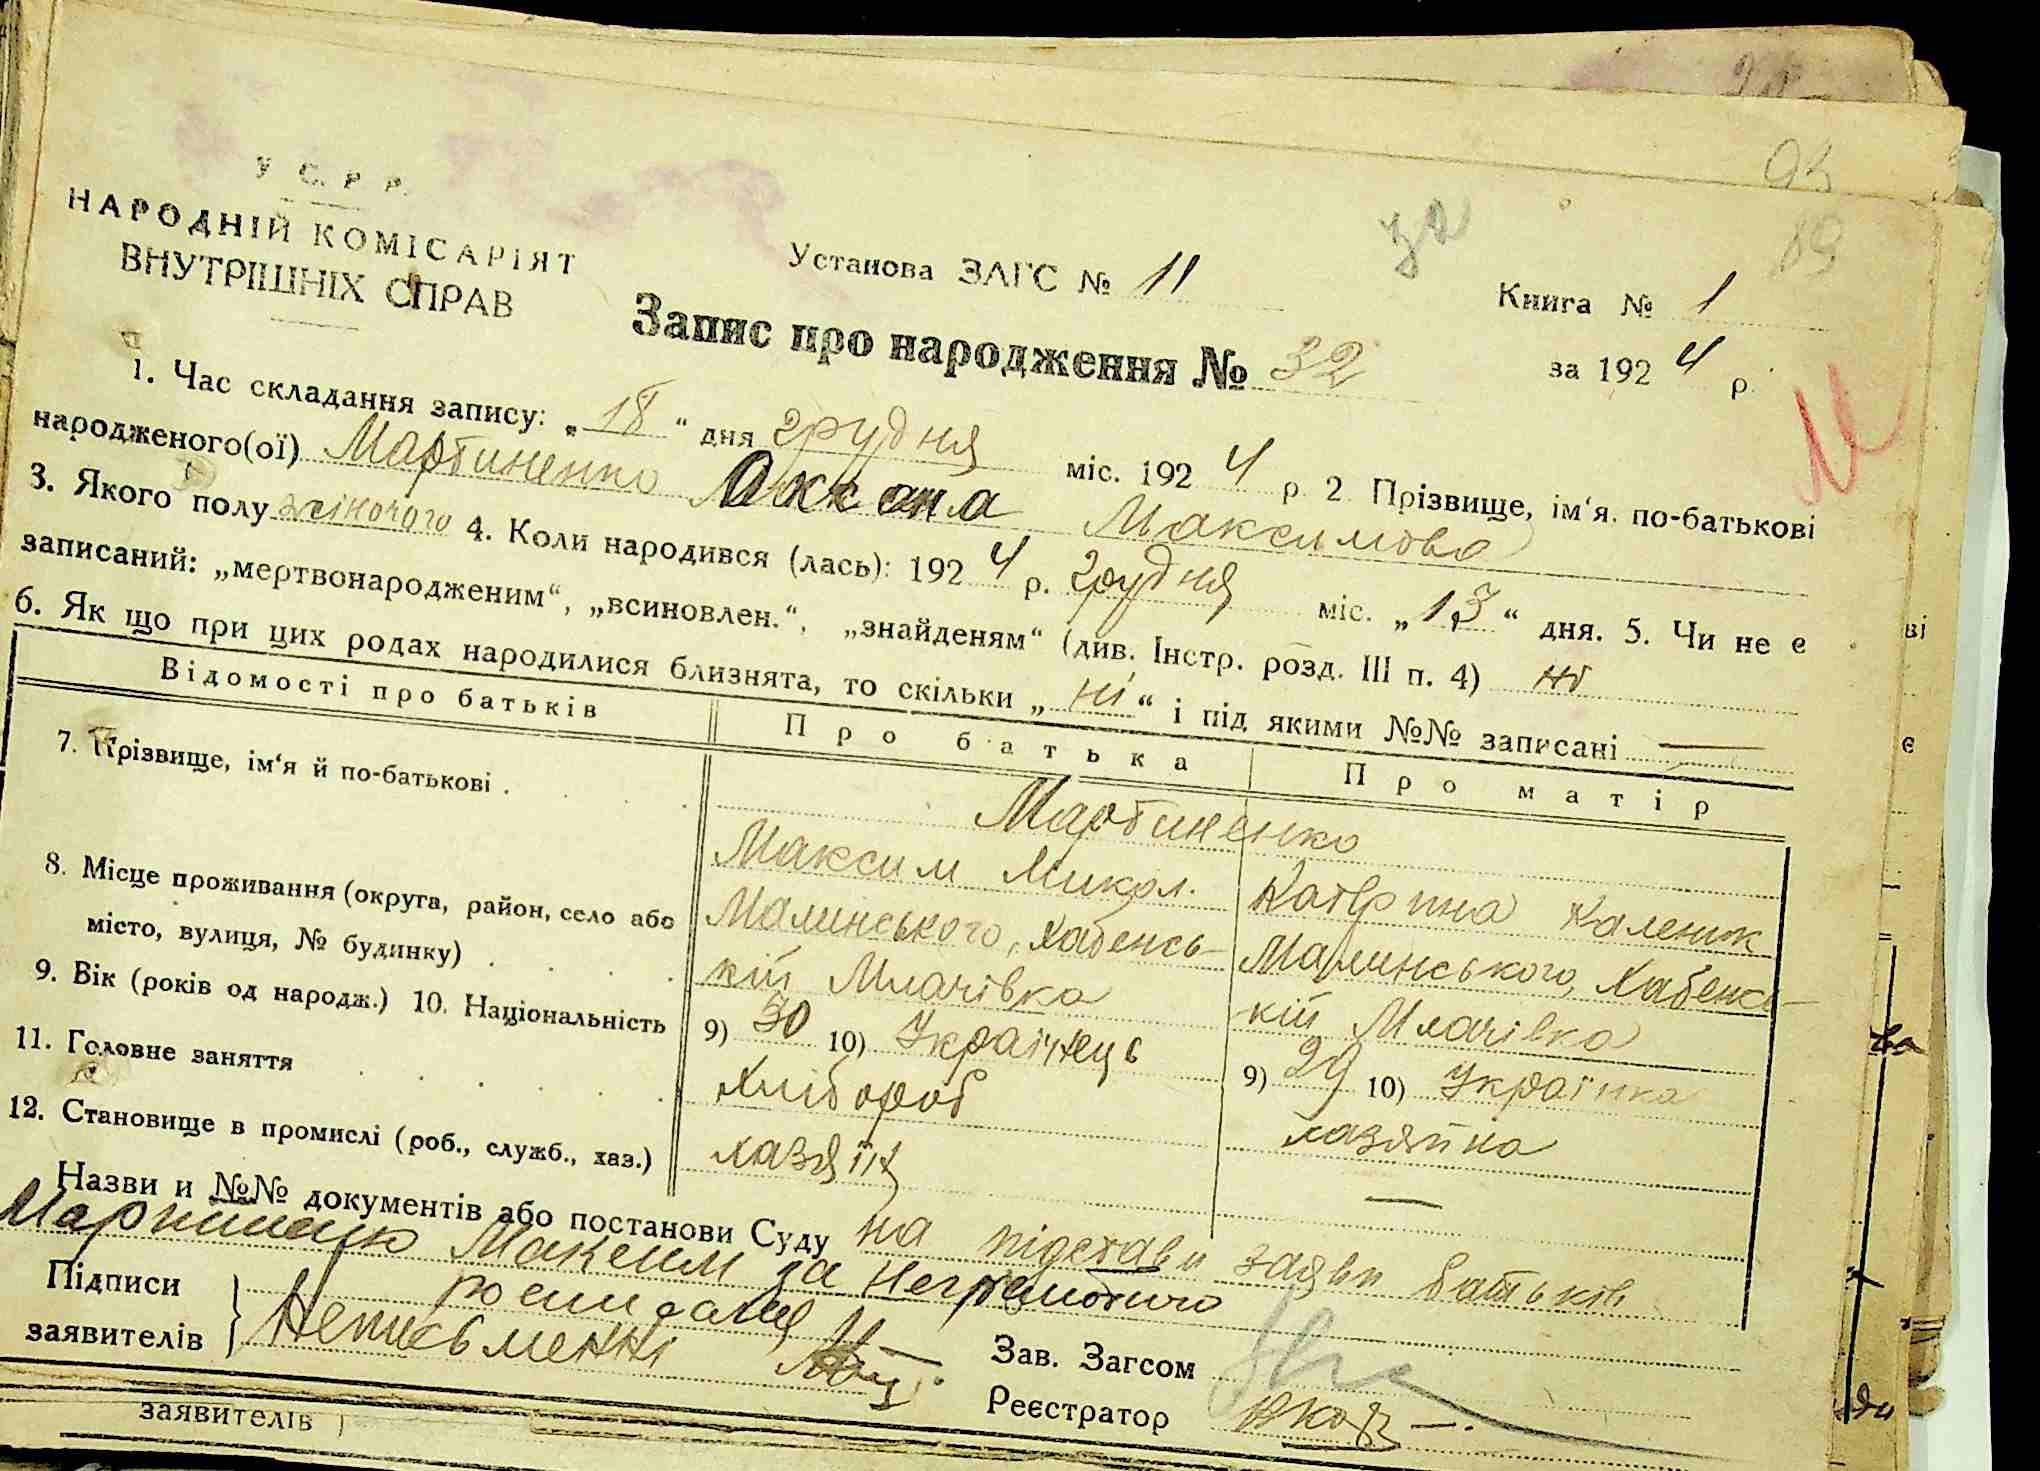 У С. Р Р.
НАРОДНІЙ КОМІСАРІЯТ
ВНУТРІШНІХ СПРАВ
Установа ЗАГС № 11
Книга № 1
89
Запис про народження № 32
за 1924 р.
1. Час складання запису: „18“ дня грудня міс. 1924 р 2. Прізвище, ім‘я, по-батькові
народженого(ої) Мартиненко Оксана Максимова
3. Якого полу жіночого 4. Коли народився (лась): 1924 р. грудня міс. „13“ дня. 5. Чи не є
записаний: „мертвонародженим“, „всиновлен.“, „знайденям“ (див. Інстр. розд. III п. 4) ні
6. Як що при цих родах народилися близнята, то скільки „ні“ і під якими №№ записані —
Відомості про батьків
Про батька
Про матір
7. Прізвище, ім‘я й по-батькові .
Мартиненко
Максим Микол.
Катерина Каленик
8. Місце проживання (округа, район, село або
місто, вулиця, № будинку)
Малинського, Хабенсь-
кій Млачівка
Малинського, Хабенсь-
кій Млачівка
9. Вік (років од народж.) 10. Національність
9) 30 10) Українець
9) 29 10) Українка
11. Головне заняття
Хлібороб
хазяйка
12. Становище в промислі (роб., служб., хаз.)
хазяїн
—
Назви и №№ документів або постанови Суду на підстави заяви батьків
Мартиненко Максим за неграмотного
Підписи
заявителів
Неписьменні
Зав. Загсом
Реєстратор
заявителів